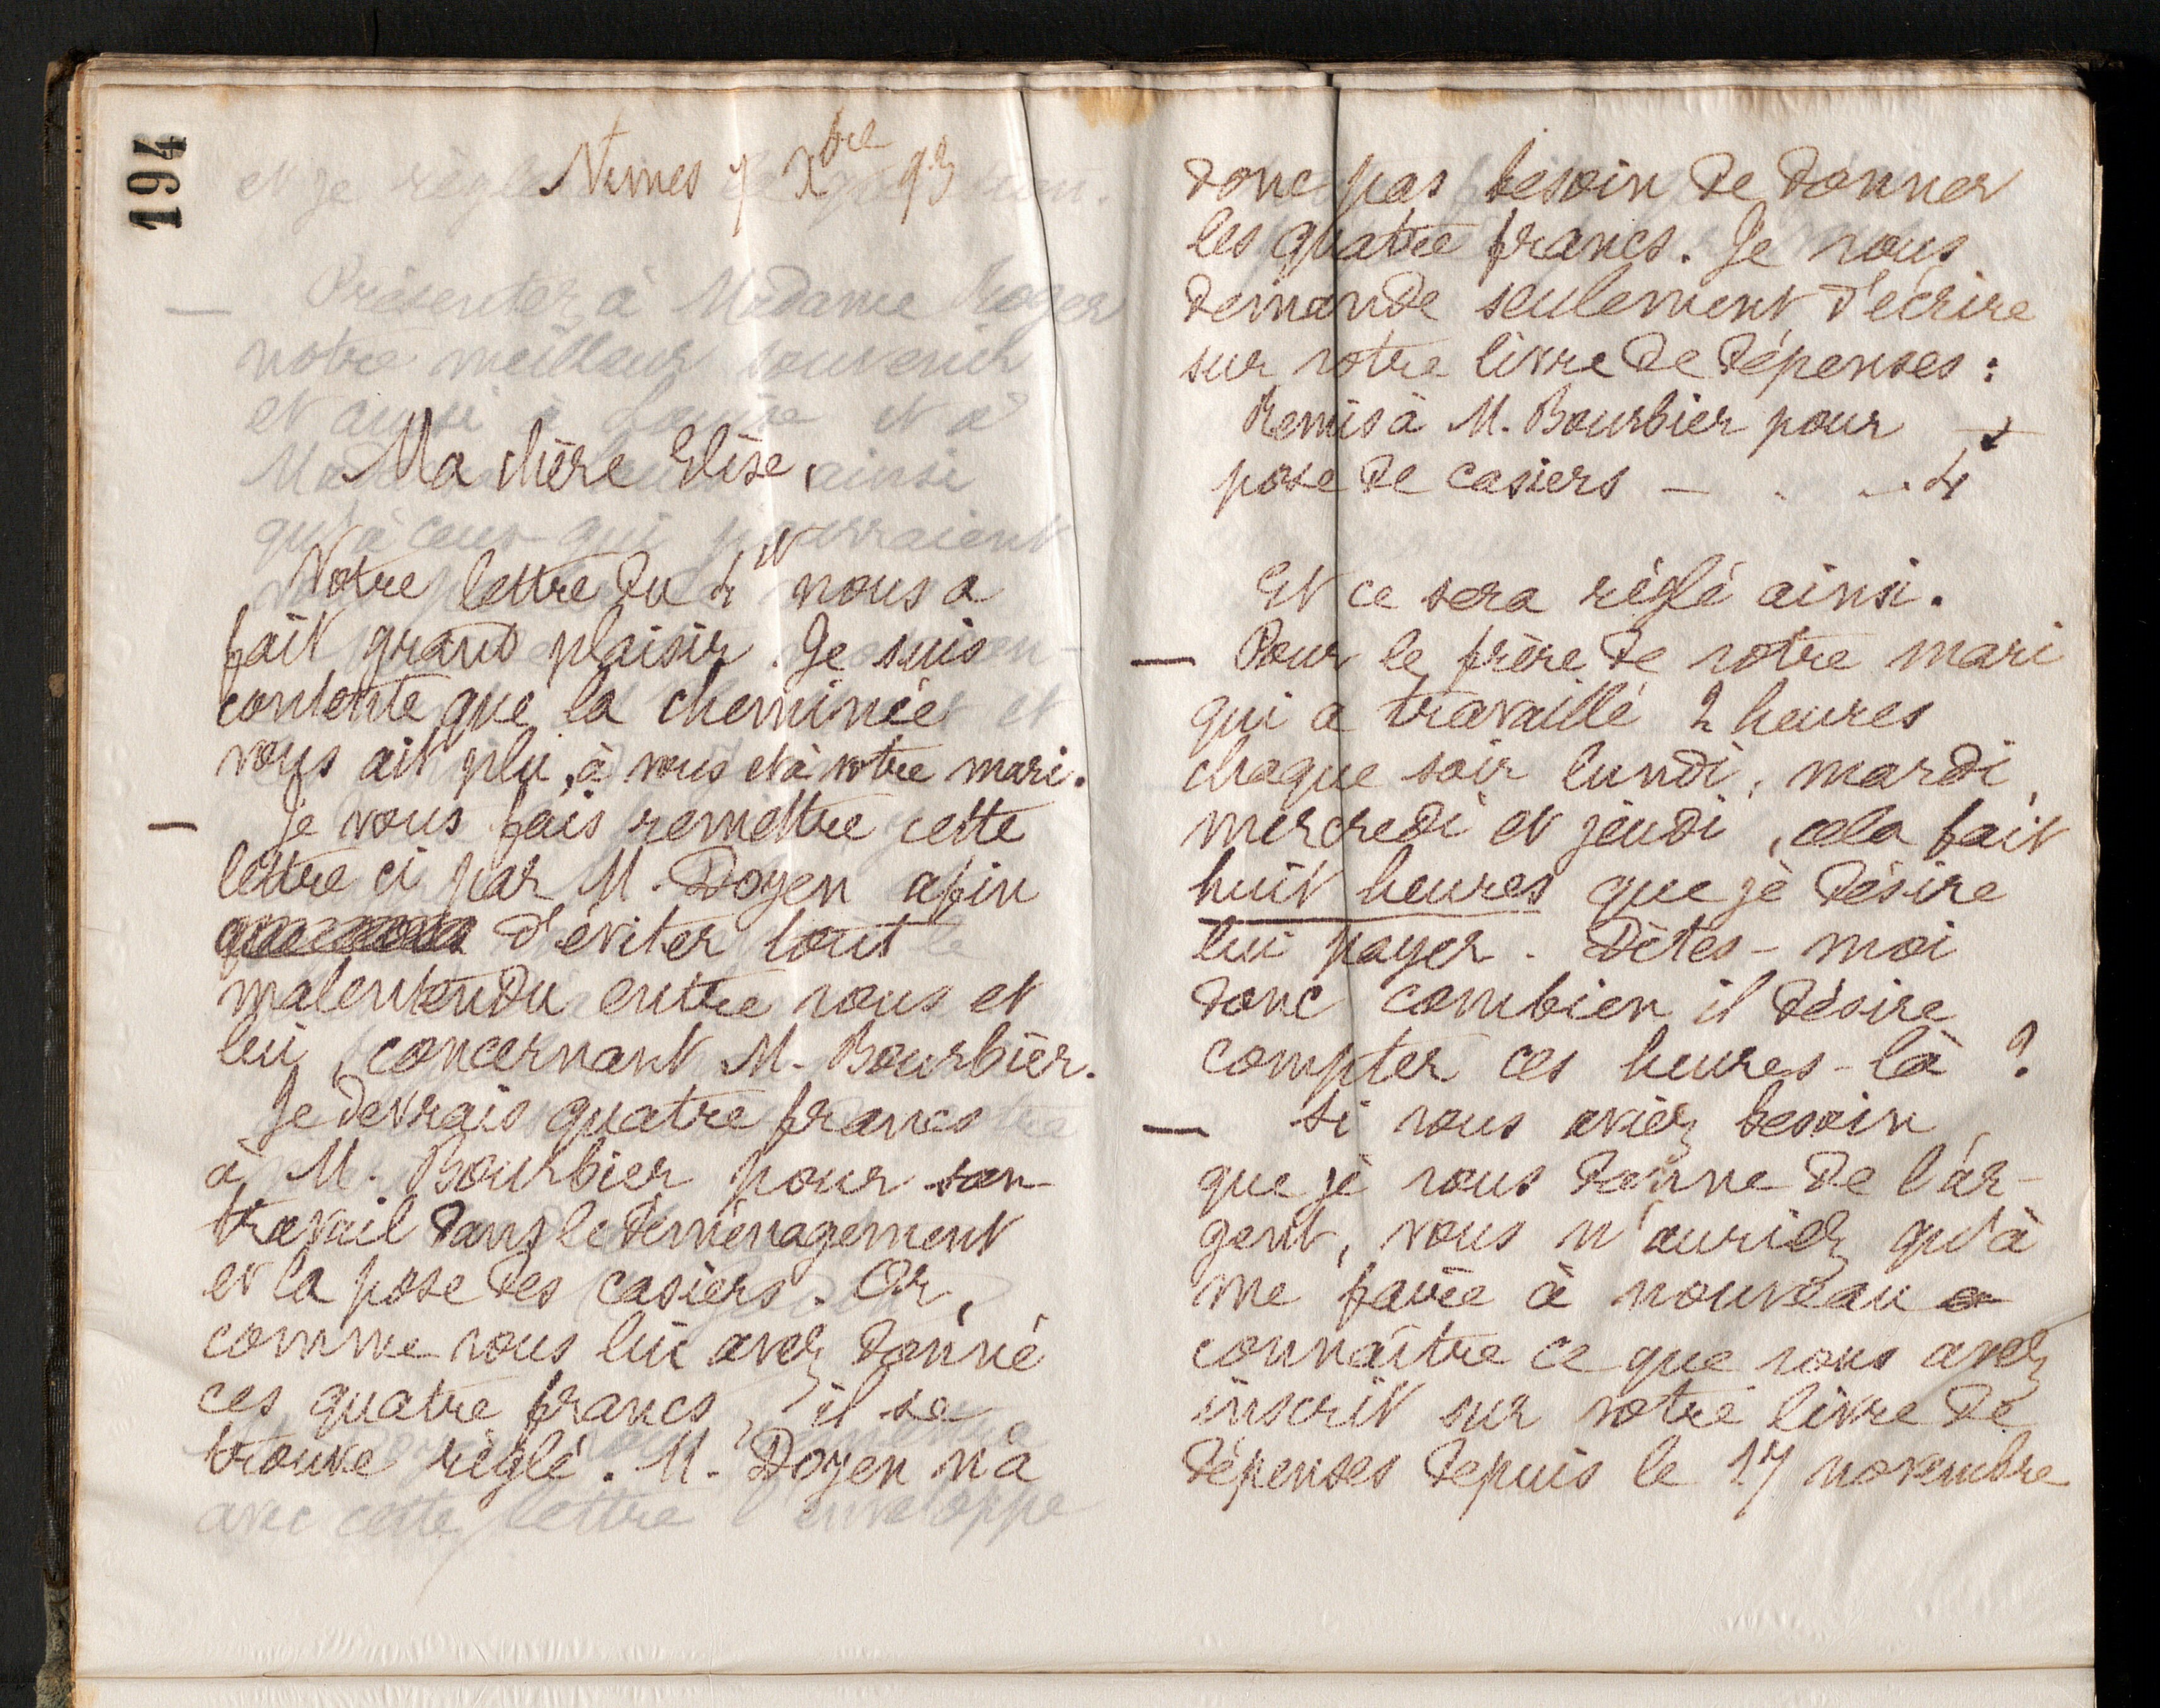 194
Nimes 7 Xbre 93
Ma chère Elise,
Votre lettre du 4 Xt nous a
fait grand plaisir. Je suis
contente que la cheminée
vous ait plu, à vous et à votre mari.
— Je vous fais remettre cette
lettre ci par M. Doyen afin
d'éviter tout
malentendu entre vous et
lui, concernant M. Bourbier.
Je devrais quatre francs
à M. Bourbier pour son
travail dans le déménagement
et la pose des casiers. Or,
comme vous lui avez donné
ces quatre francs, il se
trouve réglé. M. Doyen n'a
donc pas besoin de donner
les quatre francs. Je vous
demande seulement d'écrire
sur votre livre de dépenses:
Remis à M. Bourbier pour
pose de casiers — . .. 4
Et ce sera réglé ainsi.
— Pour le frère de votre mari
qui a travaillé 2 heures
chaque soir lundi, mardi,
mercredi et jeudi, cela fait
huit heures que je désire
lui payer. Dites-moi
donc combien il désire
compter ces heures-là?
— Si vous aviez besoin
que je vous donne de l'ar-
gent, vous n'auriez qu'à
me faire à nouveau
connaître ce que vous avez
inscrit sur votre livre de
dépenses depuis le 17 novembre
et je règle
— Présenter à Madame Roger
notre meilleur souvenir
et aussi à Louise et à
ainsi
qu'à ceux qui pourraient
avec cette lettre l'enveloppe